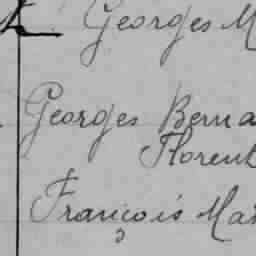 Georges M
Georges Berna
Florent
François Ma